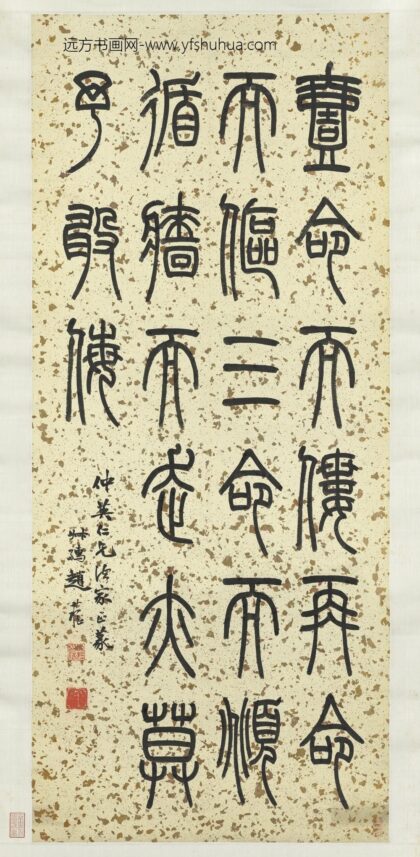 远方书画网-www.yfshuhua.com
壹命而僂再命
而傴三命而頫
循牆而走亦莫
予敢侮
仲英仁兄法家正篆
叔孺趙